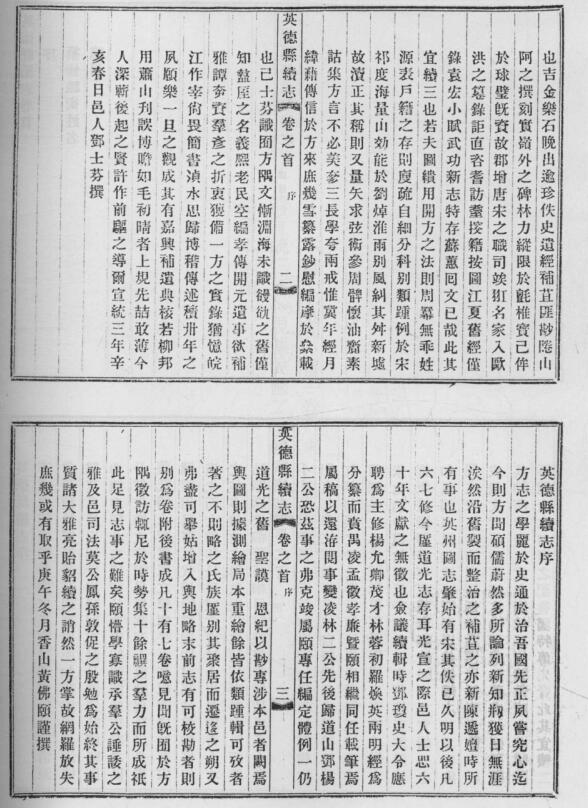 也吉金樂石晚出逾珍佚史遺經補苴匪尠陸山
阿之撰刻實嶺外之碑林力縱限於氈椎實已侔
於球璧旣賚故郡增唐宋之職司竢斑名家入歐
洪之墓錄詎直咨耆訪藁接籍按圖江夏舊經僅
錄袁宏小賦武功新志特存蘇蕙回文已哉此其
宜續三也若夫圖繢用開方之法則周羃無乖姓
源表戶籍之存則廋疏自細分科别類踵例於宋
祁度海量山効能於劉焯淮雨别風糾其舛新墟
故瀆正其稱則又量矢求弦術參周髀懷油齎素
詁集方言不必美奓三長學夸兩戒惟冀年經月
緯藉傳信於方來庶幾雪纂露鈔慰編摩於曩載
也己士芬識囿方隅文慚淵海未識綫劬之舊僅
知盩厔之名義熙老民空編孝傳開元遺事欲補
雅譚奔賚羣彥之折衷獲備一方之實錄猶憶皖
江作宰尙畏簡書湞水思歸博稽傳述積卅年之
夙願樂一旦之觀成其有嘉興補遺典核若柳邦
用蕭山刋誤博贍如毛初晴者上規先喆敢薄今
人深蘄後起之賢許作前驅之導爾宣統三年辛
亥春日邑人鄧士芬撰
英德縣續志
卷之首
序
二
英德縣續志序
方志之學麗於史通於治吾國先正夙嘗究心迄
今則方聞碩儒蔚然多所論列新知剏獲日無涯
涘然沿舊製而整治之補苴之亦新陳遞嬗時所
有事也英州圖志肇始有宋其佚已久明以後凡
六七修今僅道光志存耳光宣之際邑人士思六
十年文獻之無徵也僉議續輯時鄧瓊史大令應
聘爲主修楊允卿茂才林蓉初羅煥英兩明經爲
分纂而賁禺凌孟徵孝廉暨頤相繼同任載筆焉
屬稿以還洊閱事變凌林二公先後歸道山鄧楊
二公恐茲事之弗克竣屬頤專任編定體例一仍
道光之舊　聖謨　恩紀以尠專涉本邑者闕焉
輿圖則據測繪局本重繪餘皆依類踵輯可攷者
著之不則略之氏族匪别其聚居而遷迻之朔又
弗盡可舉姑增入輿地略末前志有可校勘者則
别爲卷附後書成凡十有七卷噫見聞旣囿於方
隅徵訪輒尼於時勢集十餘禩之羣力而所成祇
此足見志事之難矣頤懵學寡識承羣公諈諉之
雅及邑司法莫公鳳孫敦促之殷勉爲始終其事
質諸大雅亮貽貂續之誚然一方掌故網羅放失
庶幾或有取乎庚午冬月香山黃佛頤謹撰
英德縣續志
卷之首
序
三